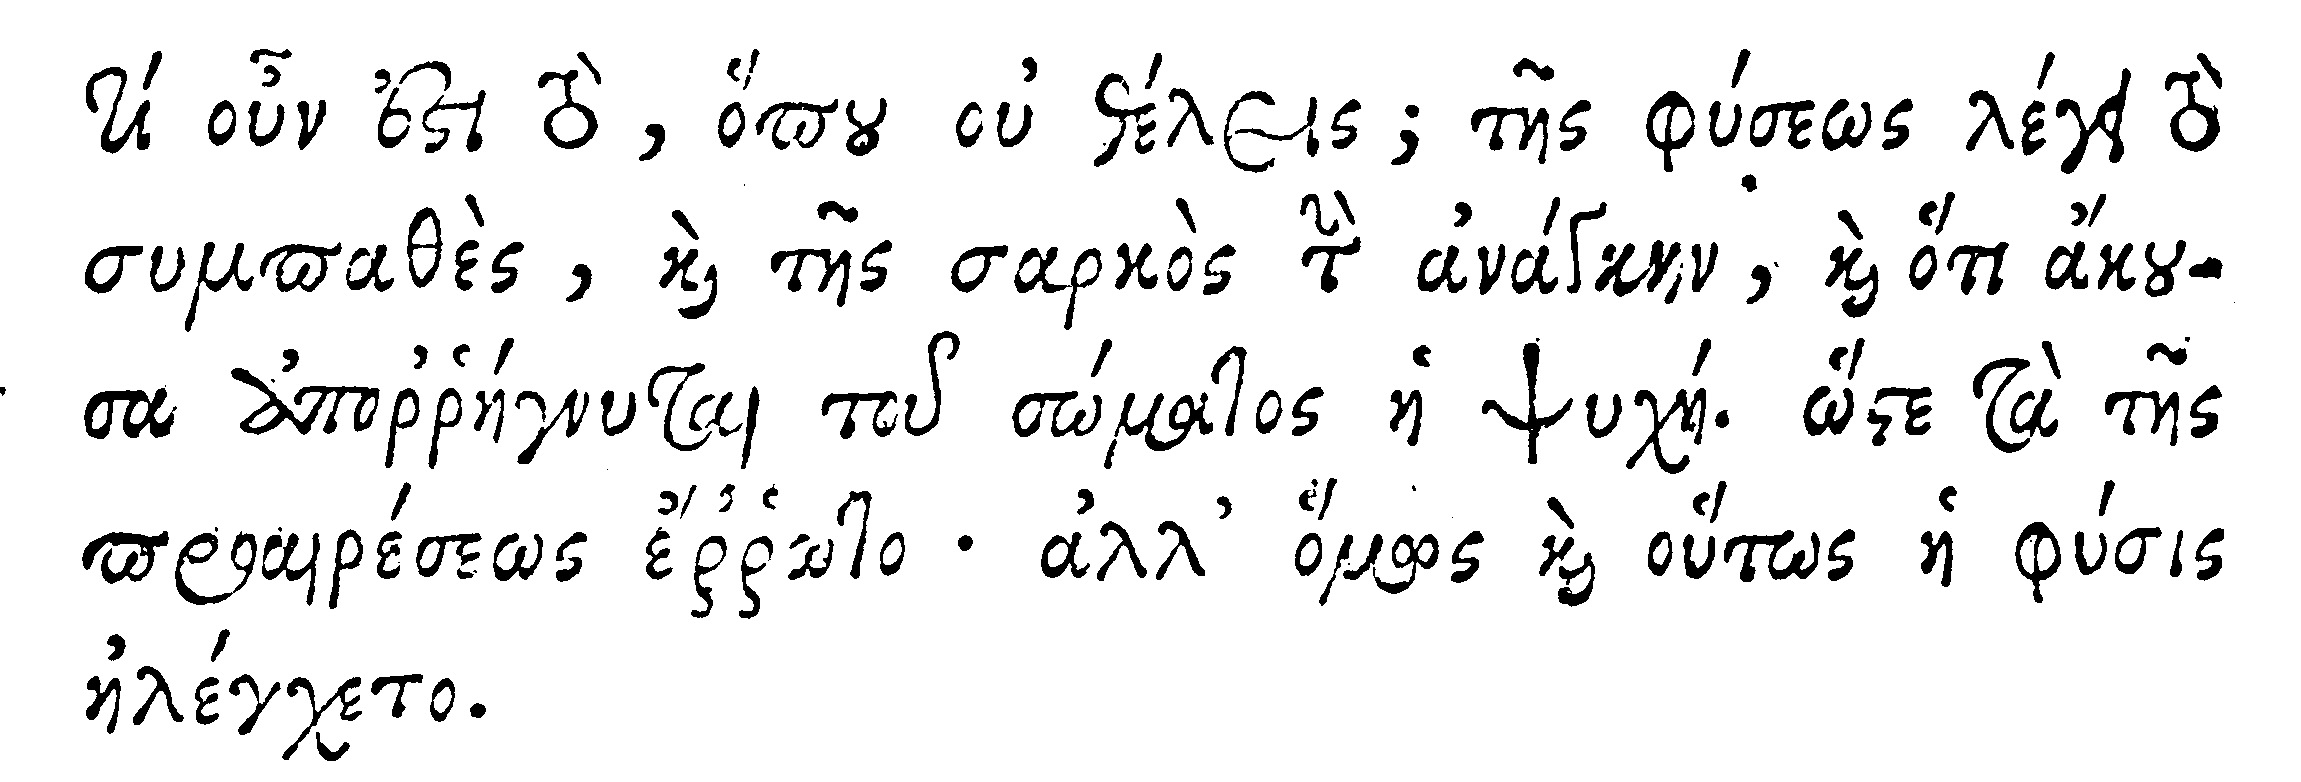 Τί οὖν ἐστι τὸ, ὅπου οὐ θέλεις; τῆς φύσεως λέγει τὸ
συμπαθὲς, καὶ τῆς σαρκὸς τὴν ἀνάγκην, καὶ ὅτι ἄκου-
σα ἀποῤῥήγνυται τοῦ σώματος ἡ ψυχή. ὥστε τὰ τῆς
προαιρέσεως ἔῤῥωτο · ἀλλ' ὅμως καὶ οὕτως ἡ φύσις
ἠλέγχετο.